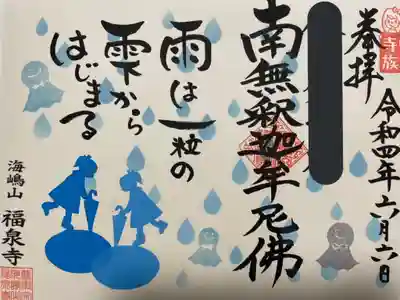 寺族
奉拝
令和四年六月六日
南無釈迦牟尼佛
雨は一粒の
雫から
はじまる
海嶋山
福泉寺